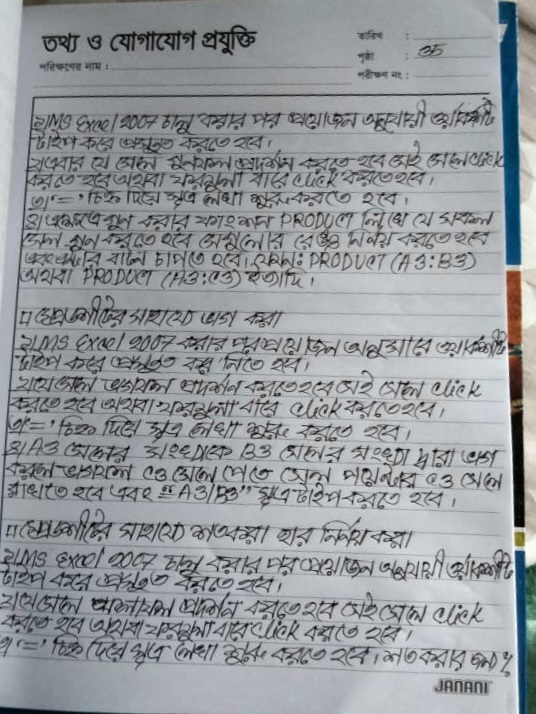 তথ্য ও যোগাযোগ প্রযুক্তি
তারিখ :
পৃষ্ঠা : ৩৫
পরিক্ষণের নাম :
পরীক্ষণ নং :
১। MS Excel 2007 চালু করার পর প্রয়োজন অনুযায়ী ওয়ার্কশীট
টাইপ করে প্রস্তুত করতে হবে।
২। এবার যে সেলে গুনফল প্রদর্শন করতে হবে সেই সেলে click
করতে হবে অথবা ফরমুলা বারে click করতে হবে।
৩। '=' চিহ্ন দিয়ে সূত্র লেখা শুরু করতে হবে।
৪। এক্ষেত্রে গুন করার ফাংশন PRODUCT লিখে যে সকল
সেল গুন করতে হবে সেগুলোর রেঞ্জ নির্নয় করতে হবে
এবং এন্টার বাটন চাপতে হবে। যেমন: PRODUCT (A3:B3)
অথবা PRODUCT (A3:C3) ইত্যাদি।
□ স্প্রেডশীটের সাহায্যে ভাগ করা
১। MS Excel 2007 চালু করার পর প্রয়োজন অনুসারে ওয়ার্কশীট
টাইপ করে প্রস্তুত করে নিতে হবে।
২। যে সেলে ভাগফল প্রদর্শন করতে হবে সেই সেলে click
করতে হবে অথবা ফরমুলা বারে click করতে হবে।
৩। '=' চিহ্ন দিয়ে সূত্র লেখা শুরু করতে হবে।
৪। A3 সেলের সংখ্যাকে B3 সেলের সংখ্যা দ্বারা ভাগ
করলে ভাগফল C3 সেলে পেতে সেল পয়েন্টার C3 সেলে
রাখতে হবে এবং "=A3/B3" সূত্র টাইপ করতে হবে।
□ স্প্রেডশীটের সাহায্যে শতকরা হার নির্নয় করা
১। MS Excel 2007 চালু করার পর প্রয়োজন অনুযায়ী ওয়ার্কশীট
টাইপ করে প্রস্তুত করতে হবে।
২। যে সেলে ফলাফল প্রদর্শন করতে হবে সেই সেলে click
করতে হবে অথবা ফরমুলা বারে click করতে হবে।
৩। '=' চিহ্ন দিয়ে সূত্র লেখা শুরু করতে হবে। শতকরার জন্য %
JANANI